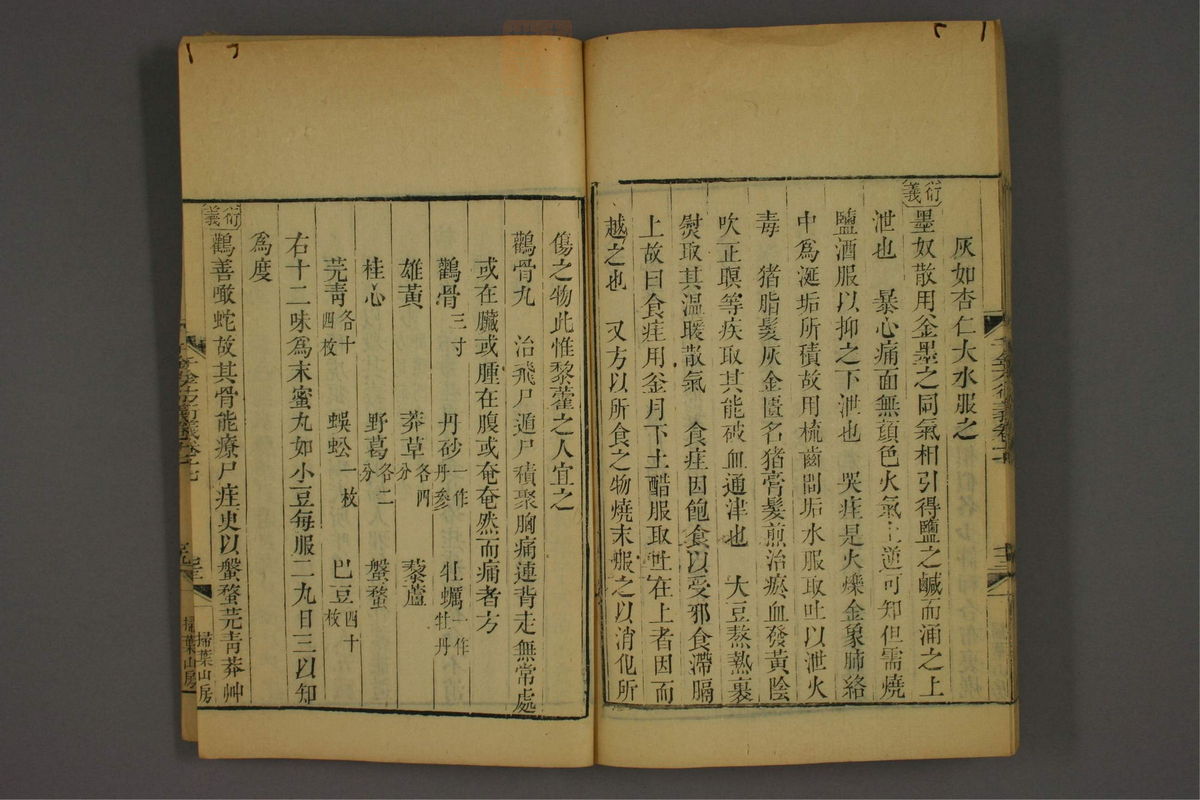 灰如杏仁大水服之
衍義
墨奴散用釜墨之同氣相引得鹽之鹹而涌之上
泄也　暴心痛面無顔色火氣上逆可知但需燒
鹽酒服以抑之下泄也　哭疰是火爍金象肺絡
中爲涎垢所積故用梳齒間垢水服取吐以泄火
毒　豬脂髮灰金匱名猪膏髮煎治瘀血發黃陰
吹正暝等疾取其能破血通津也　大豆熬熱裹
熨取其温暖散氣　食疰因飽食以受邪食滯膈
上故曰食疰用釜月下土醋服取吐在上者因而
越之也　又方以所食之物燒末服之以消化所
傷之物此惟黎藿之人宜之
鸛骨丸　治飛尸遁尸積聚胸痛連背走無常處
或在臟或腫在腹或奄奄然而痛者方
鸛骨三寸　丹砂一作丹參　牡蠣一作牡丹
雄黃　莽草各四分　藜蘆
桂心　野葛各二分　盤蝥
芫靑各十四枚　蜈蚣一枚　巴豆四十枚
右十二味爲末蜜丸如小豆每服二丸日三以知
爲度
衍義
鸛善啖蛇故其骨能療尸疰更以盤蝥芫靑莽艸
掃葉山房
掃葉山房